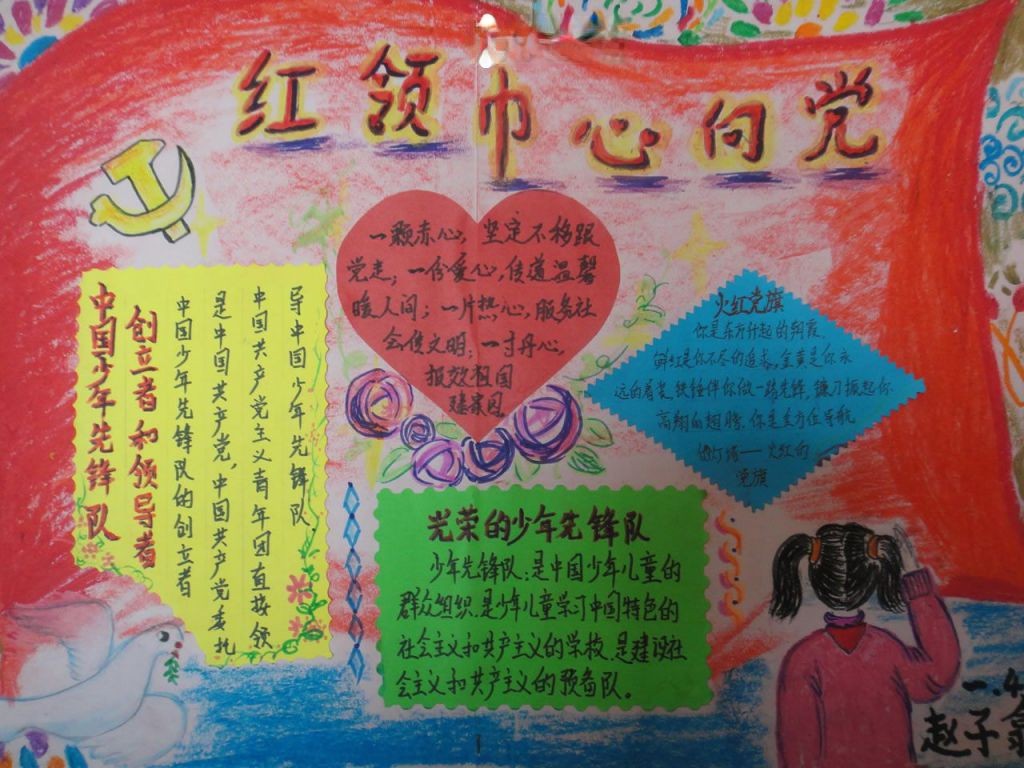 红领巾心向党
中国少年先锋队
创立者和领导者
中国少年先锋队的创立者
是中国共产党,中国共产党委托
中国共产党主义青年团直接领
导中国少年先锋队
一颗赤心,坚定不移跟
党走;一份爱心,传道温馨
暖人间;一片热心,服务社
会传文明;一寸丹心,
报效祖国
建家园
火红党旗
你是东方升起的朝霞
鲜红是你不尽的追求,金黄是你永
远的着装,铁锤伴你做一路先锋,镰刀振起你
高翔的翅膀,你是全方位导航
的灯塔——火红的
党旗
光荣的少年先锋队
少年先锋队:是中国少年儿童的
群众组织.是少年儿童学习中国特色的
社会主义和共产主义的学校.是建设社
会主义和共产主义的预备队。
一.4
赵子